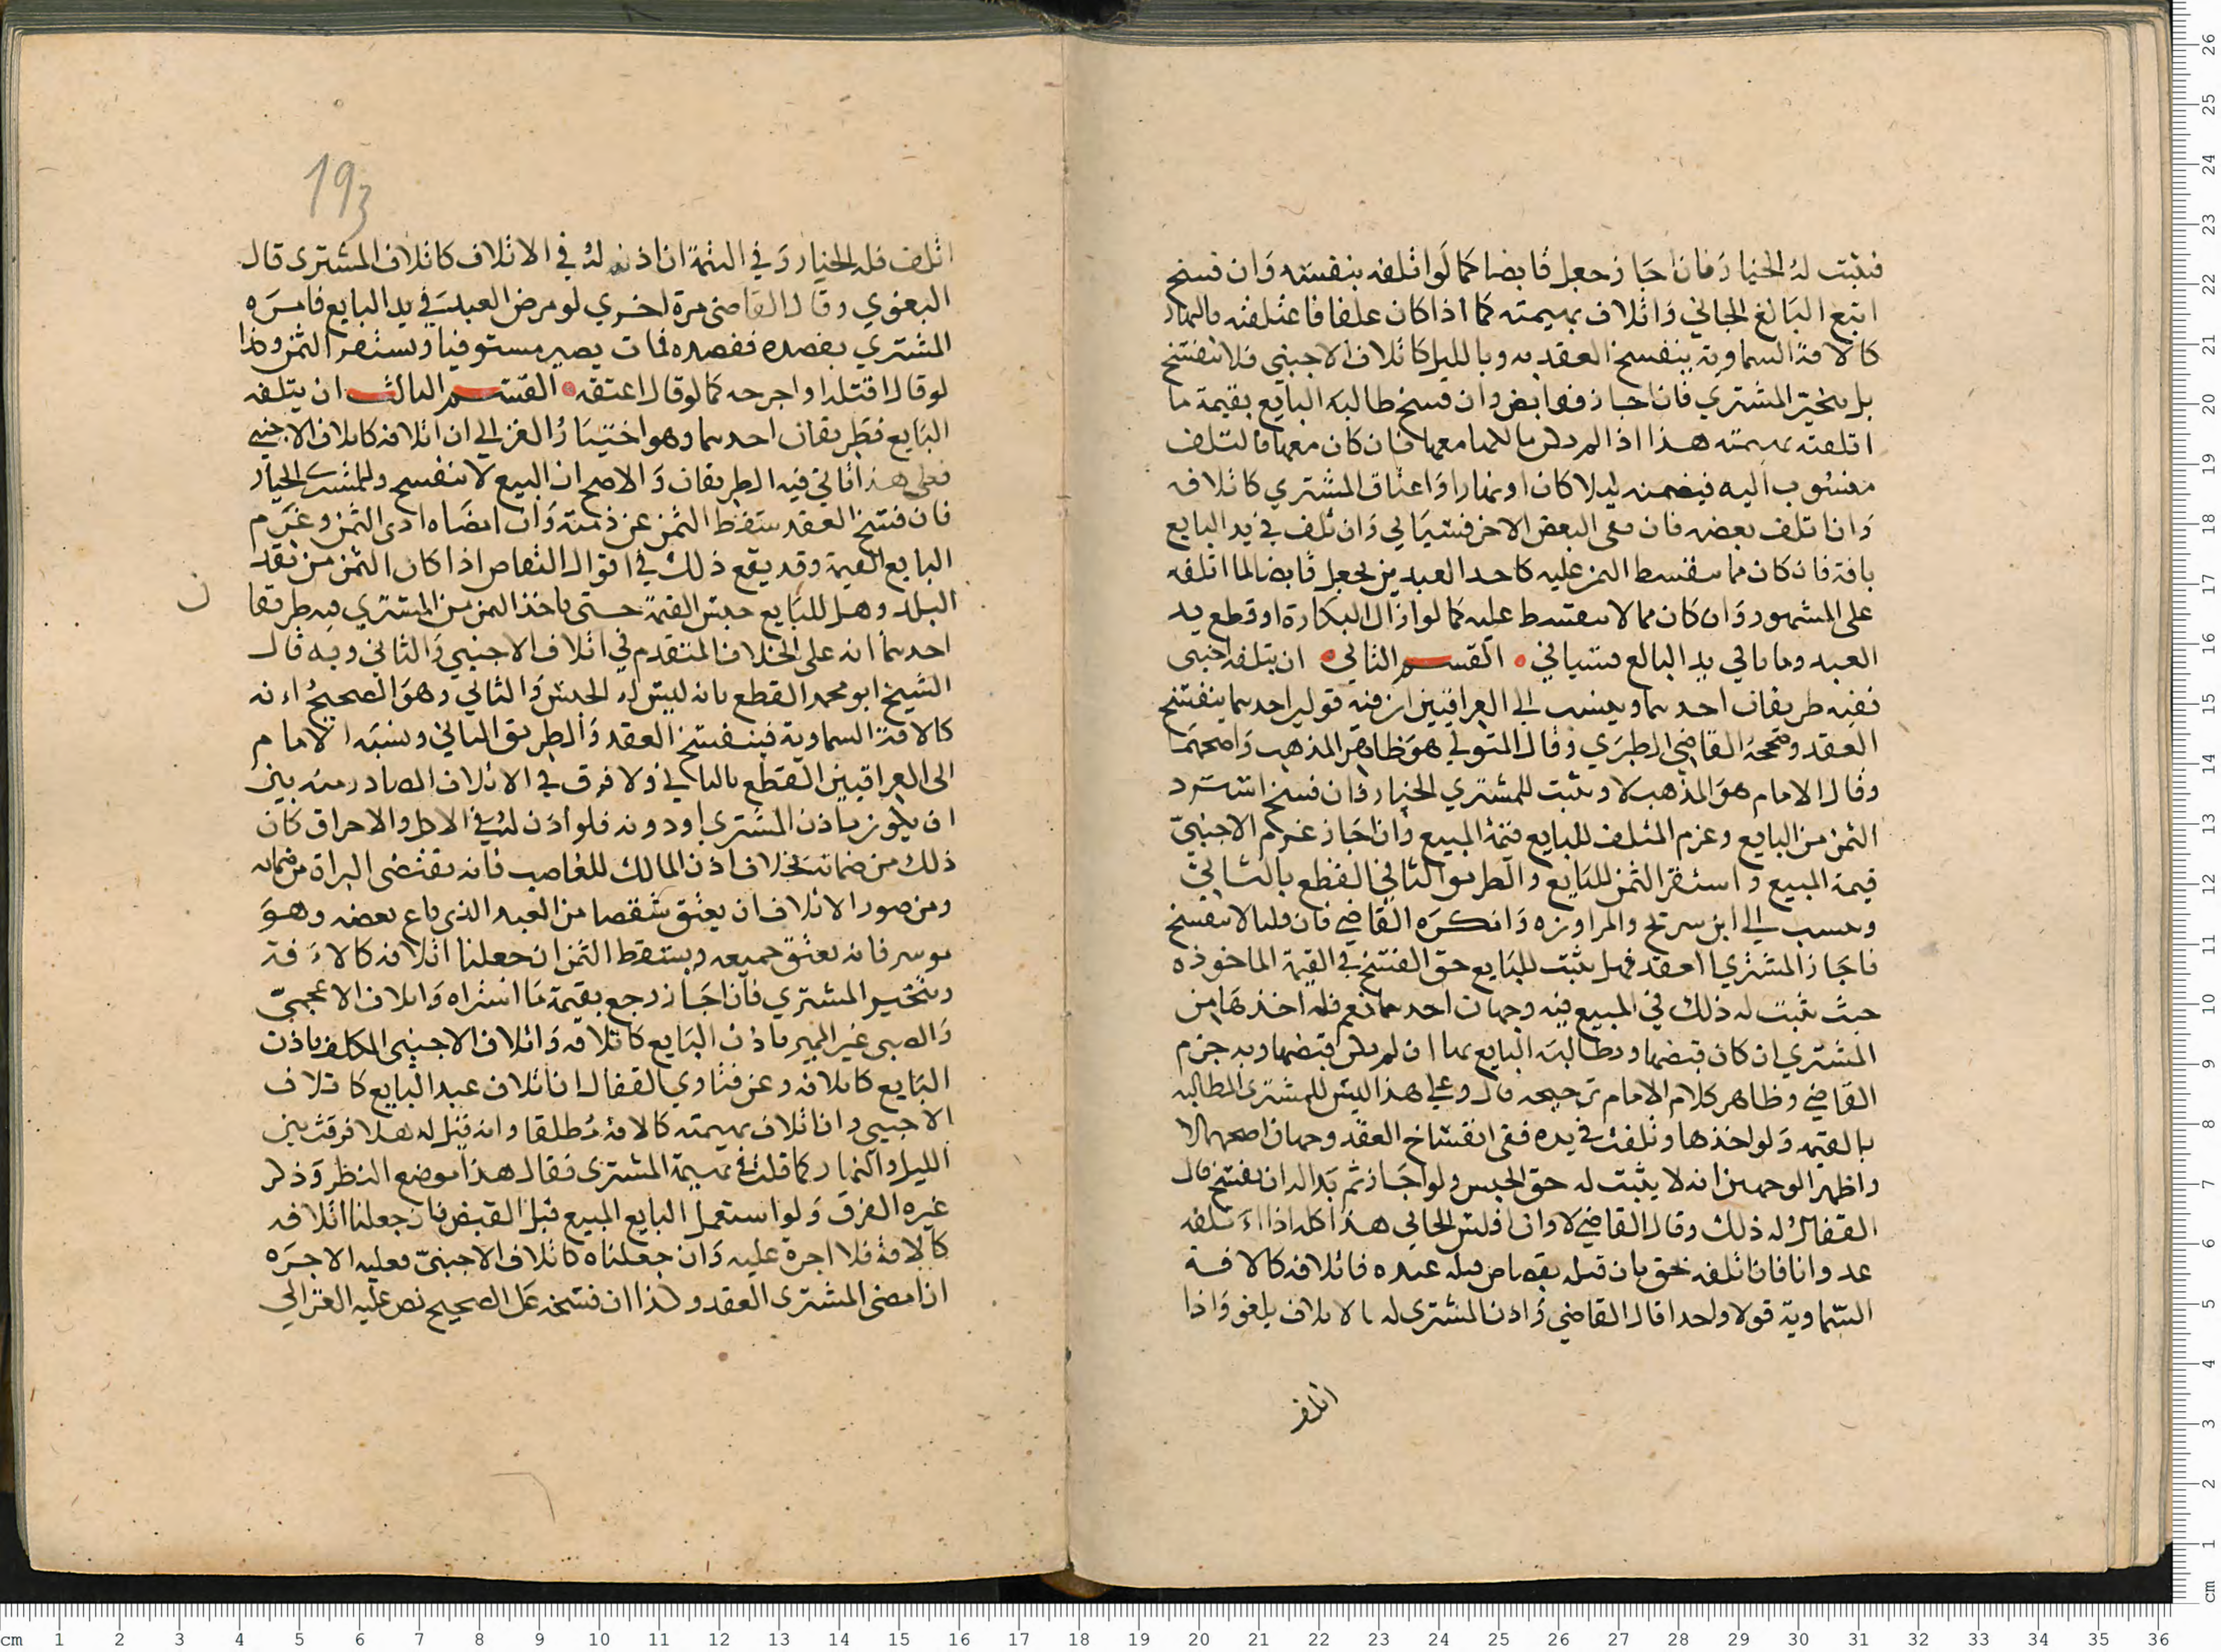 فيثبت له الخيار فان اجاز جعل قابضا كما لو اتلفه بنفسه وان فسخ
اتبع البائع الجاني واتلاف بهيمته كما اذا كان علفا فاعتلفته بالنهار
كالافة السماوية ينفسخ العقد به وبالليل كاتلاف الاجنبي فلا ينفسخ
بل يتخير المشتري فان اجاز فقابض وان فسخ طالبه البايع بقيمة ما
اتلفته بهيمته هذا اذا لم يكن مالكها معها فان كان معها فالتلف
منسوب اليه فيضمنه ليلا كان او نهارا واعتاق المشتري كاتلافه
وان اتلف بعضه فان بقى البعض الاخر فسياتي وان تلف في يد البايع
بافة فان كان مما يتقسط الثمن عليه كاحد العبدين يجعل قابضا لما اتلفه
على المشهور وان كان مما لا يتقسط عليه كما لو ازال البكارة او قطع يد
العبد وماتا في يد البائع فسياتي القسم الثاني ان يتلفه اجنبي
ففيه طريقان احدهما وينسب الى العراقيين ان فيه قولين احدهما ينفسخ
العقد وصححه القاضي الطبري وقال المتولي هو ظاهر المذهب واصحهما
وقال الامام هو المذهب لا ويثبت للمشتري الخيار فان فسخ استرد
الثمن من البايع وغرم المتلف للبايع قيمة المبيع وان اجاز غرم الاجنبي
قيمة المبيع واستقر الثمن للبايع والطريق الثاني القطع بالثاني
وينسب الى ابن سريج والمراوزة وانكره القاضي فان قلنا لا ينفسخ
فاجاز المشتري العقد فهل يثبت للبايع حق الفسخ في القيمة الماخوذه
حيث يثبت له ذلك في المبيع فيه وجهان احدهما نعم فله اخذها من
المشتري ان كان قبضها ومطالبة البايع بها ان لم يكن قبضها وبه جزم
القاضي وظاهر كلام الامام ترجيحه قال وعلى هذا ليس للمشتري المطالبه
بالقيمة ولو اخذها وتلفت في يده ففي انفساخ العقد وجهان اصحهما لا
واظهر الوجهين انه لا يثبت له حق الحبس ولو اجاز ثم بدا له ان يفسخ قال
القفال له ذلك وقال القاضي لا وان افلس الجاني هذا كله اذا تلفه
عدوانا فان اتلفه بحق بان قتله بقصاص قتله عبده فاتلافه كالافة
السماوية قولا واحدا قال القاضي واذن المشتري له بالاتلاف يلغو واذا
اتلف
193
اتلف فله الخيار وفي التتمة ان اذنه له في الاتلاف كاتلاف المشتري قال
البغوي وقال القاضي مرة اخري لو مرض العبد في يد البايع فامره
المشتري بفصده ففصده فمات يصير مستوفيا ويستقر الثمن وكذا
لو قال اقتله او اجرحه كما لو قال اعتقه القسم الثالث ان يتلفه
البايع فطريقان احدهما وهو اختيار الغزالي ان اتلافه كاتلاف الاجنبي
فعلى هذا ياتي فيه الطريقان والاصح ان البيع لا ينفسخ وللمشتري الخيار
فان فسخ العقد سقط الثمن عن ذمته وان امضاه ادى الثمن وغرم
البايع القيمة وقد يقع ذلك في اقوال التقاص اذا كان الثمن من نقد
البلد وهل للبايع حبس القيمة حتى ياخذ الثمن من المشتري فيه طريقا
ن
احدهما انه على الخلاف المتقدم في اتلاف الاجنبي والثاني وبه قال
الشيخ ابو محمد القطع بانه ليس له الحبس والثاني وهو الصحيح انه
كالافة السماوية فينفسخ العقد والطريق الثاني ونسبه الامام
الى العراقيين القطع بالثاني ولا فرق في الاتلاف الصادر منه بين
ان يكون باذن المشتري او دونه فلو اذن له في الاكل والاحراق كان
ذلك من ضمانه بخلاف اذن المالك للغاصب فانه يقتضى البراة من ضمانه
ومن صور الاتلاف ان يعتق شقصا من العبد الذي باع بعضه وهو
موسر فانه يعتق جميعه ويسقط الثمن ان جعلنا اتلافه كالافة
ويتخير المشتري فان اجاز رجع بقيمة ما اشتراه واتلاف الاعجمي
والصبي غير المميز باذن البايع كاتلافه واتلاف الاجنبي المكلف باذن
البايع كاتلافه وعن فتاوي القفال ان اتلاف عبد البايع كاتلاف
الاجنبي وان اتلاف بهيمته كالافة مطلقا وانه قيل له هلا فرقت بين
الليل والنهار كما قلت في بهيمة المشترى فقال هذا موضع النظر وذكر
غيره الفرق ولو استعمل البايع المبيع قبل القبض فان جعلنا اتلافه
كالافة فلا اجرة عليه وان جعلناه كاتلاف الاجنبي فعليه الاجره
ان امضى المشترى العقد وكذا ان فسخه على الصحيح نص عليه الغزالي